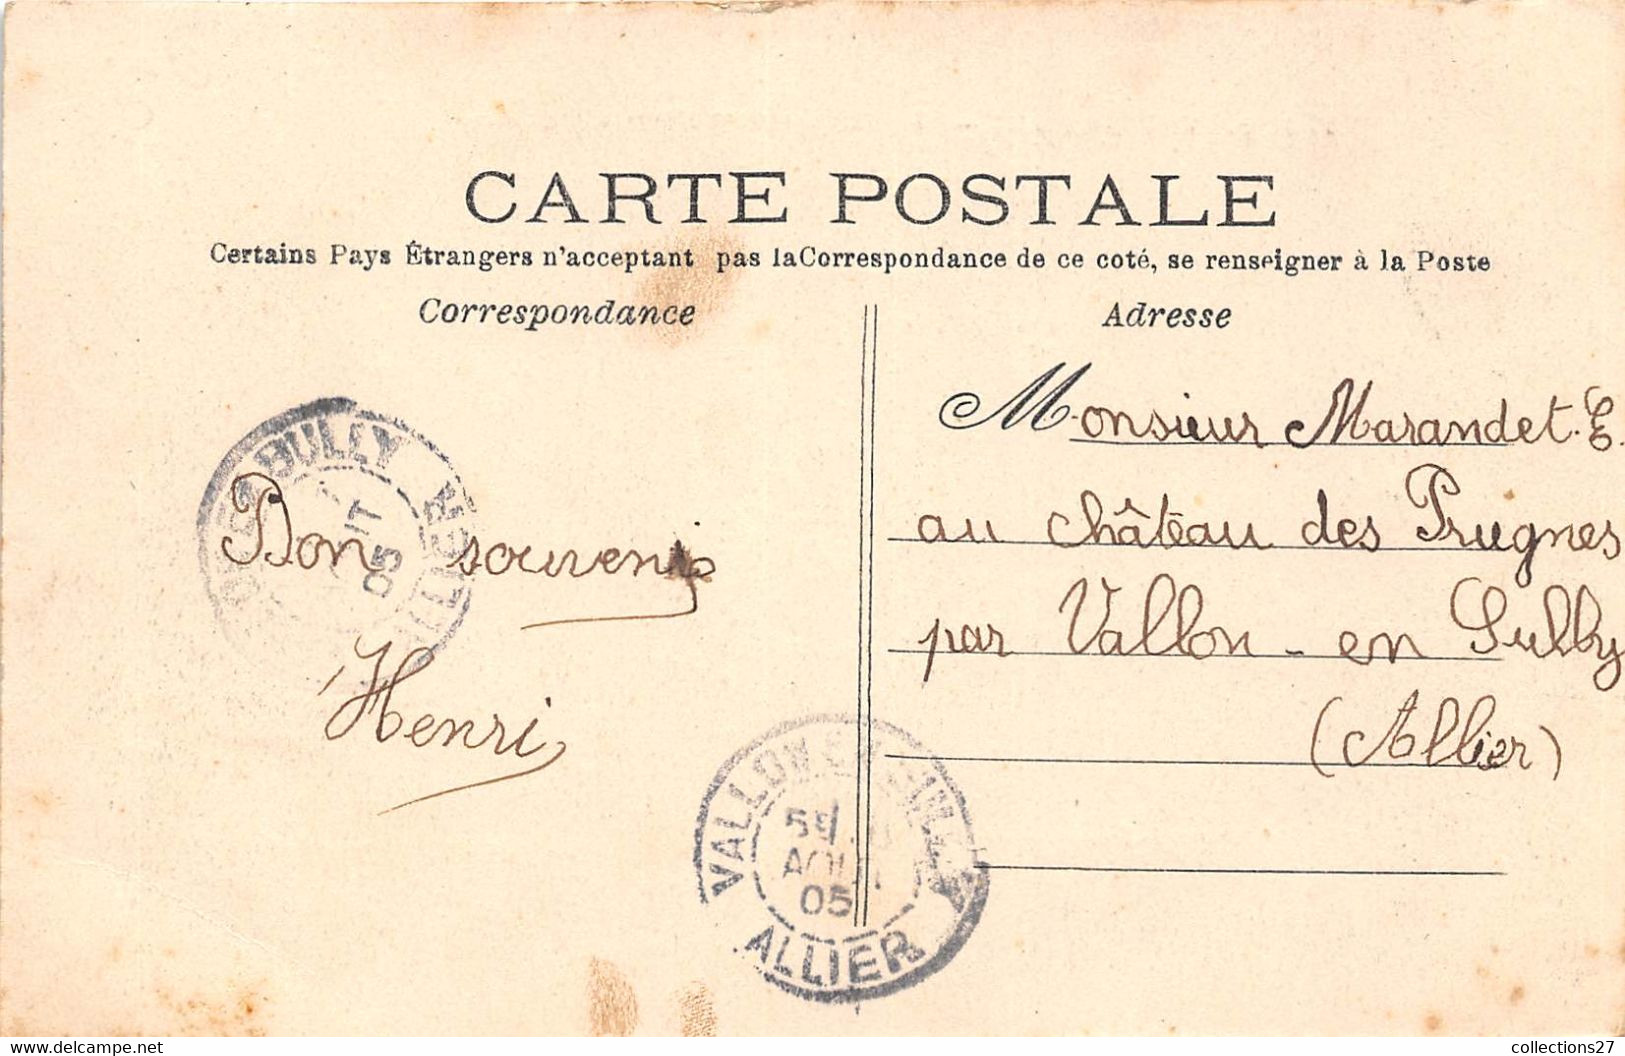 CARTE POSTALE
Certains Pays Étrangers n'acceptant pas laCorrespondance de ce coté, se renseigner à la Poste
Correspondance
Adresse
BULLY
ALLIER
05
Bon souvenir
Henri
Monsieur Marandet. E.
au château des Prugnes
par Vallon - en Sully
(Allier)
VALLON EN SULLY
5E
AOUT
05
ALLIER
collections27